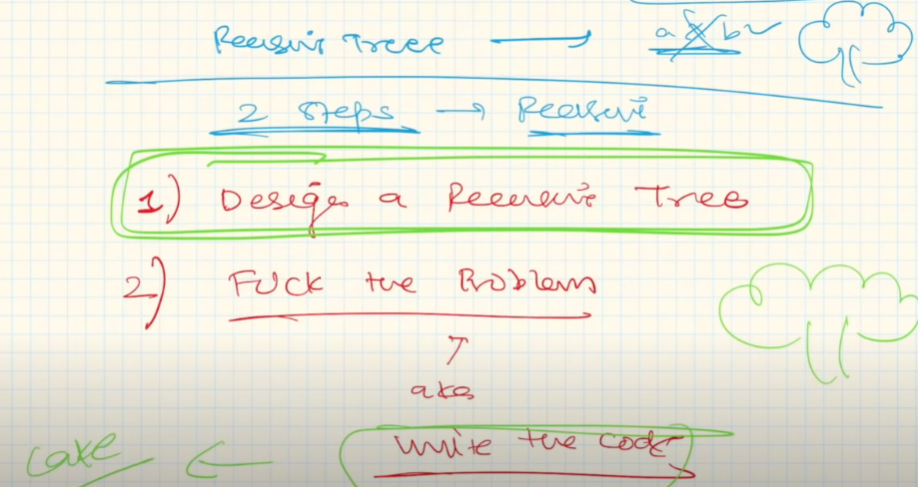 Recursive Tree → a & b
2 steps → Recursive
1) Design a Recursive Tree
2) FUCK the Problem
aka
write the code
cake ←